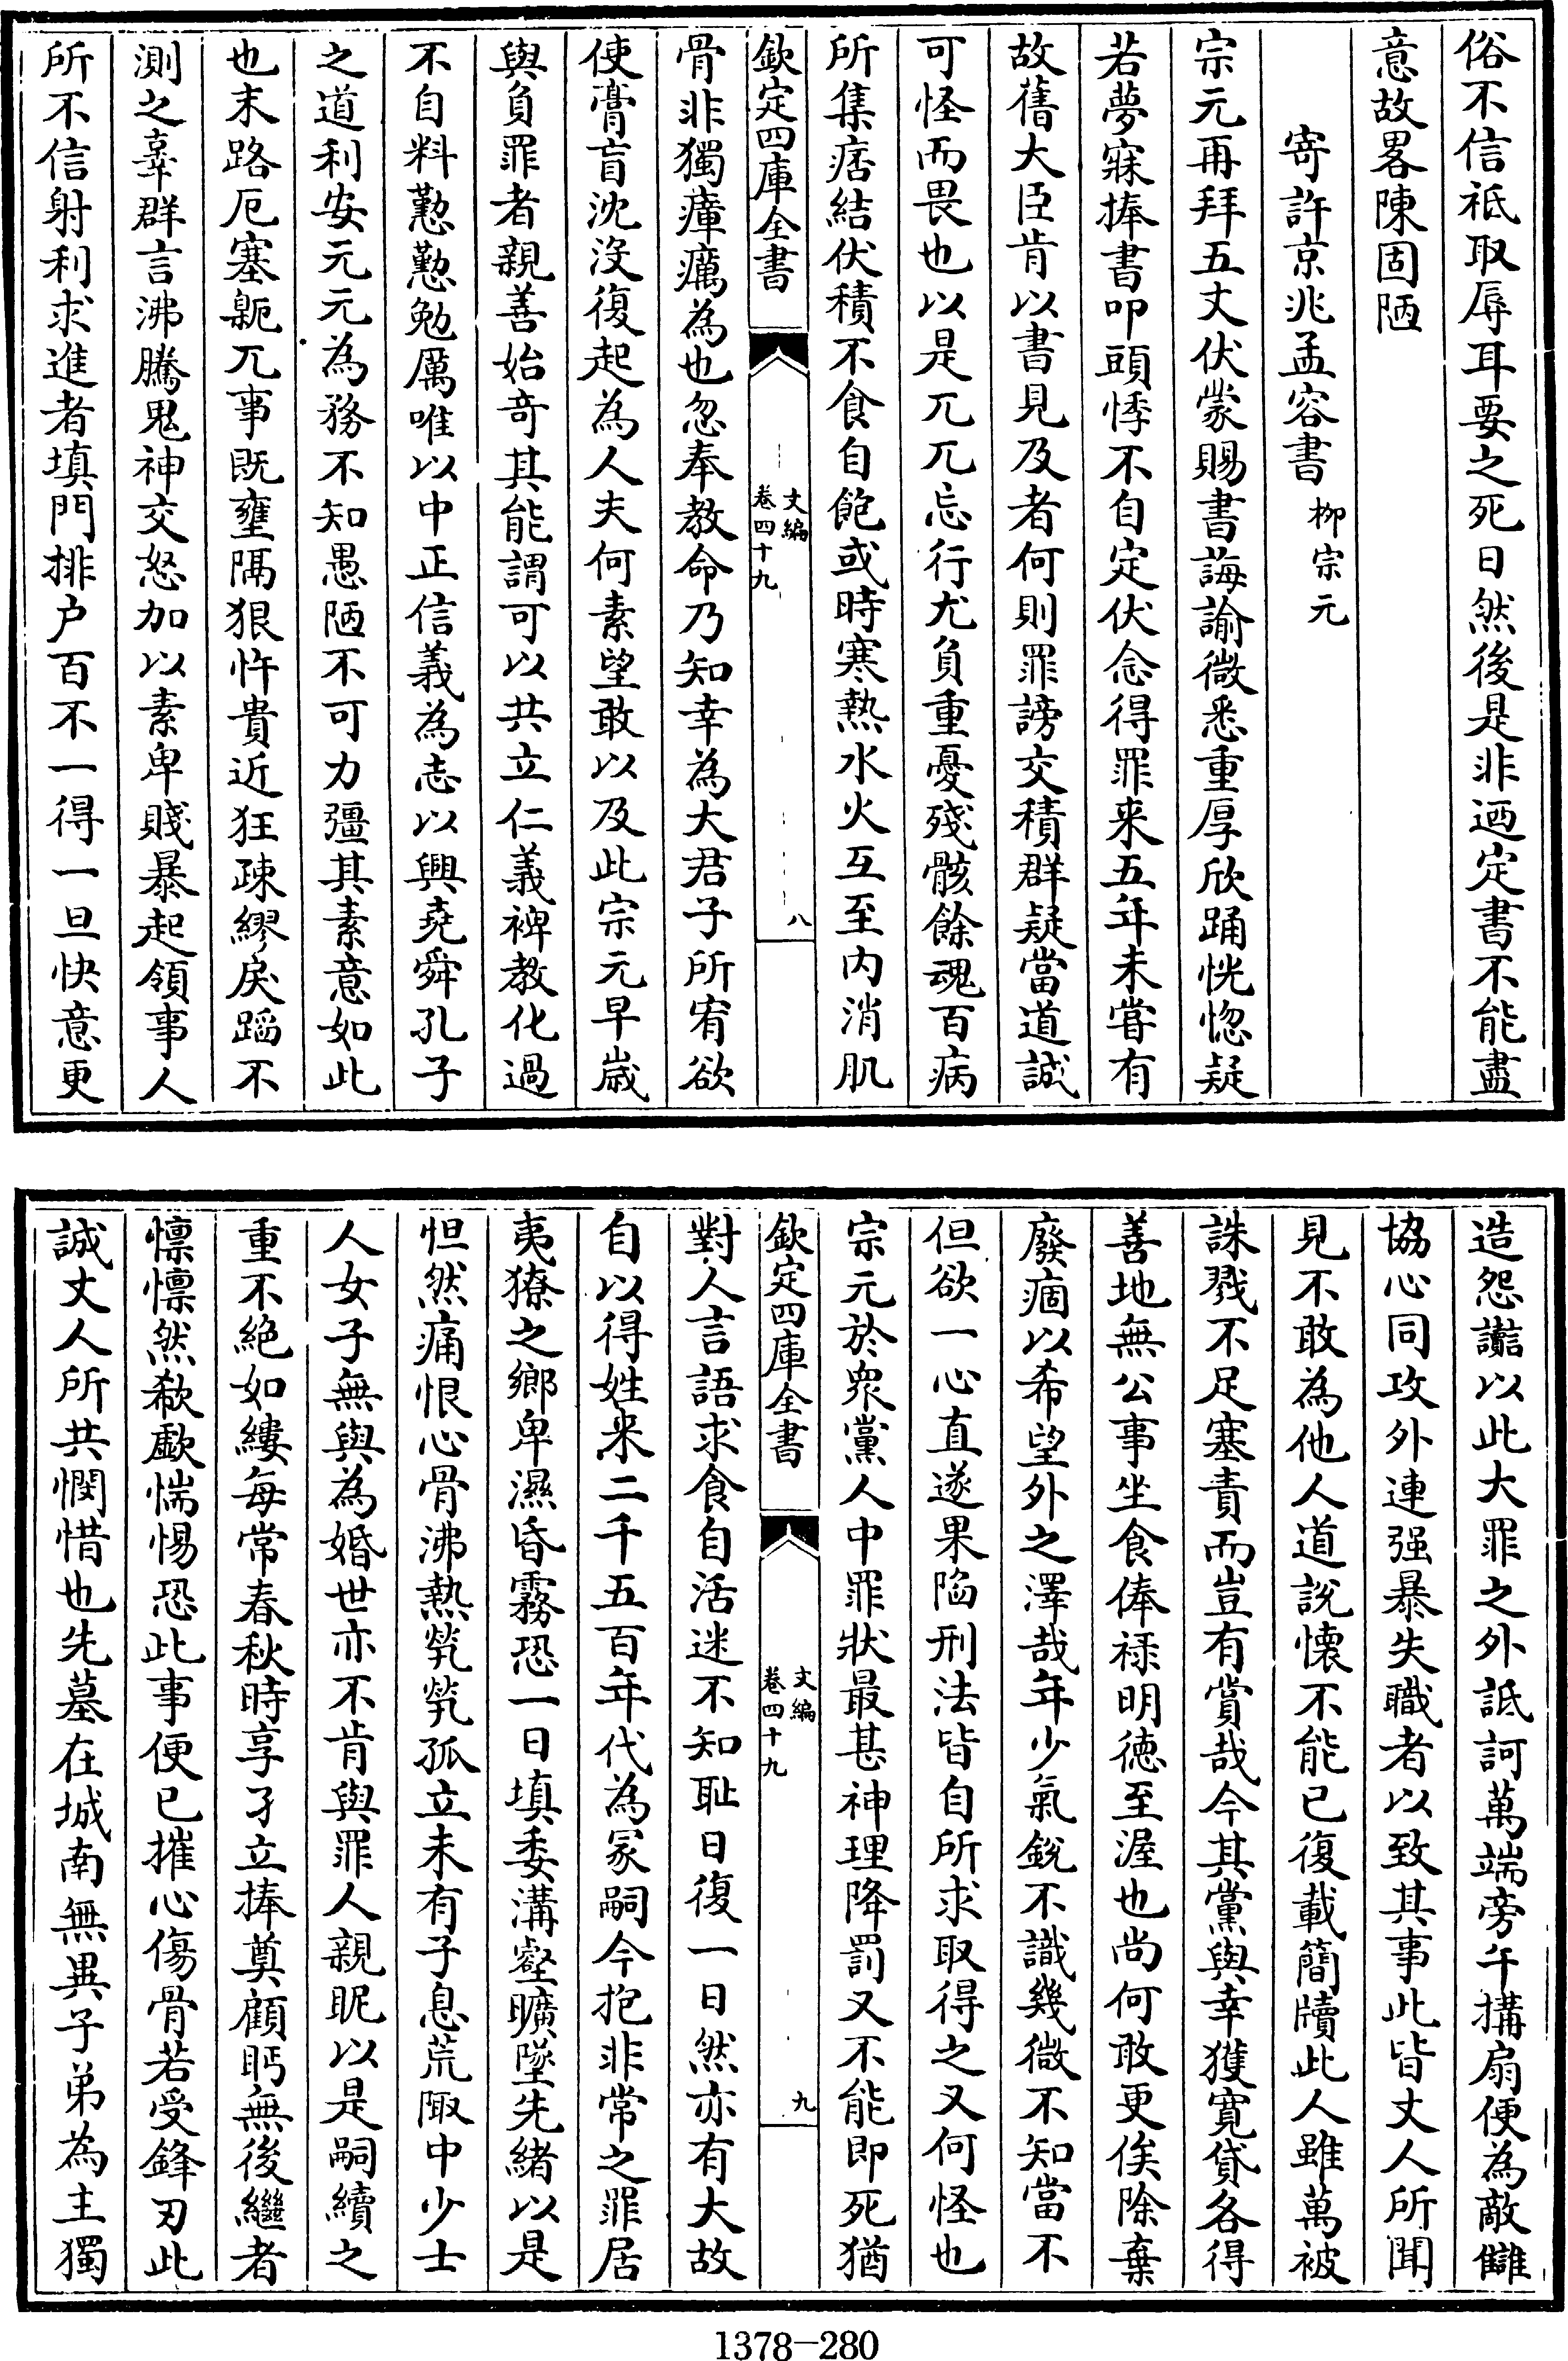 俗不信祗取辱耳要之死日然後是非迺定書不能盡
意故畧陳固陋
寄許京兆孟容書 柳宗元
宗元再拜五丈伏蒙賜書誨諭微悉重厚欣踊恍惚疑
若夢寐捧書叩頭悸不自定伏念得罪来五年未嘗有
故舊大臣肯以書見及者何則罪謗交積群疑當道誠
可怪而畏也以是兀兀忘行尤負重憂殘骸餘魂百病
所集痞結伏積不食自飽或時寒熱水火互至内消肌
欽定四庫全書
文編
卷四十九
八
骨非獨瘴癘為也忽奉教命乃知幸為大君子所宥欲
使膏肓沈没復起為人夫何素望敢以及此宗元早歲
與負罪者親善始奇其能謂可以共立仁義裨教化過
不自料懃懃勉厲唯以中正信義為志以興堯舜孔子
之道利安元元為務不知愚陋不可力彊其素意如此
也末路厄塞臲兀事既壅隔狠忤貴近狂疎繆戾蹈不
測之辜群言沸騰鬼神交怒加以素卑賤暴起領事人
所不信射利求進者填門排户百不一得一旦快意更
造怨讟以此大罪之外詆訶萬端旁午搆扇便為敵讎
協心同攻外連强暴失職者以致其事此皆丈人所聞
見不敢為他人道說懷不能已復載簡牘此人雖萬被
誅戮不足塞責而豈有賞哉今其黨與幸獲寛貸各得
善地無公事坐食俸禄明德至渥也尚何敢更俟除棄
廢痼以希望外之澤哉年少氣銳不識幾微不知當不
但欲一心直遂果陷刑法皆自所求取得之又何怪也
宗元於衆黨人中罪狀最甚神理降罰又不能即死猶
欽定四庫全書
文編
卷四十九
九
對人言語求食自活迷不知恥日復一日然亦有大故
自以得姓来二千五百年代為冢嗣今抱非常之罪居
夷獠之鄉卑濕昏霧恐一日填委溝壑曠墜先緒以是
怛然痛恨心骨沸熱煢煢孤立未有子息荒陬中少士
人女子無與為婚世亦不肯與罪人親昵以是嗣續之
重不絶如縷每常春秋時享孑立捧奠顧眄無後繼者
懔懔然欷歔惴惕恐此事便已摧心傷骨若受鋒刃此
誠丈人所共憫惜也先墓在城南無異子弟為主獨
1378-280